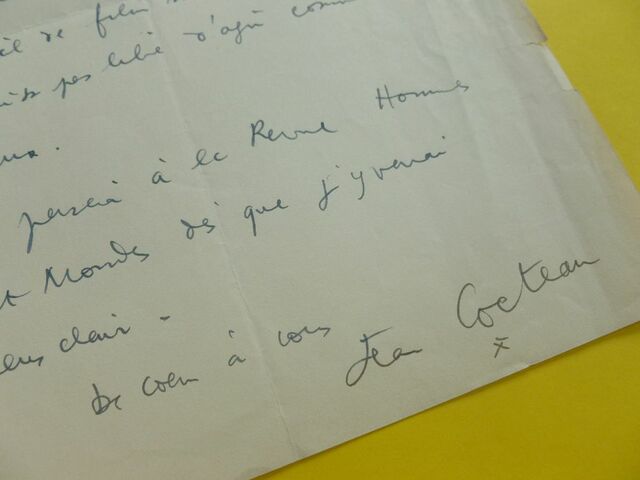 de film
pas libre d'agir comme
penserai à la Revue Hommes
et Mondes dès que j'y verrai
plus clair -
De cœur à vous
Jean Cocteau
x